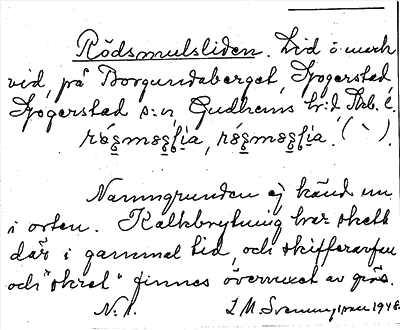 Rödsmulsliden. Lid ö. mark
vid, på Borgundaberget, Sjogerstad
Sjogerstad s:n, Gudhems h:d, Skb. l.
Namngrunden ej känd nu
i orten. Kalkbrytning har skett
där i gammal tid, och skifferavfall
och "skret" finnes övervuxet av gräs.
N. A. I. M. Svenningsson 1948.